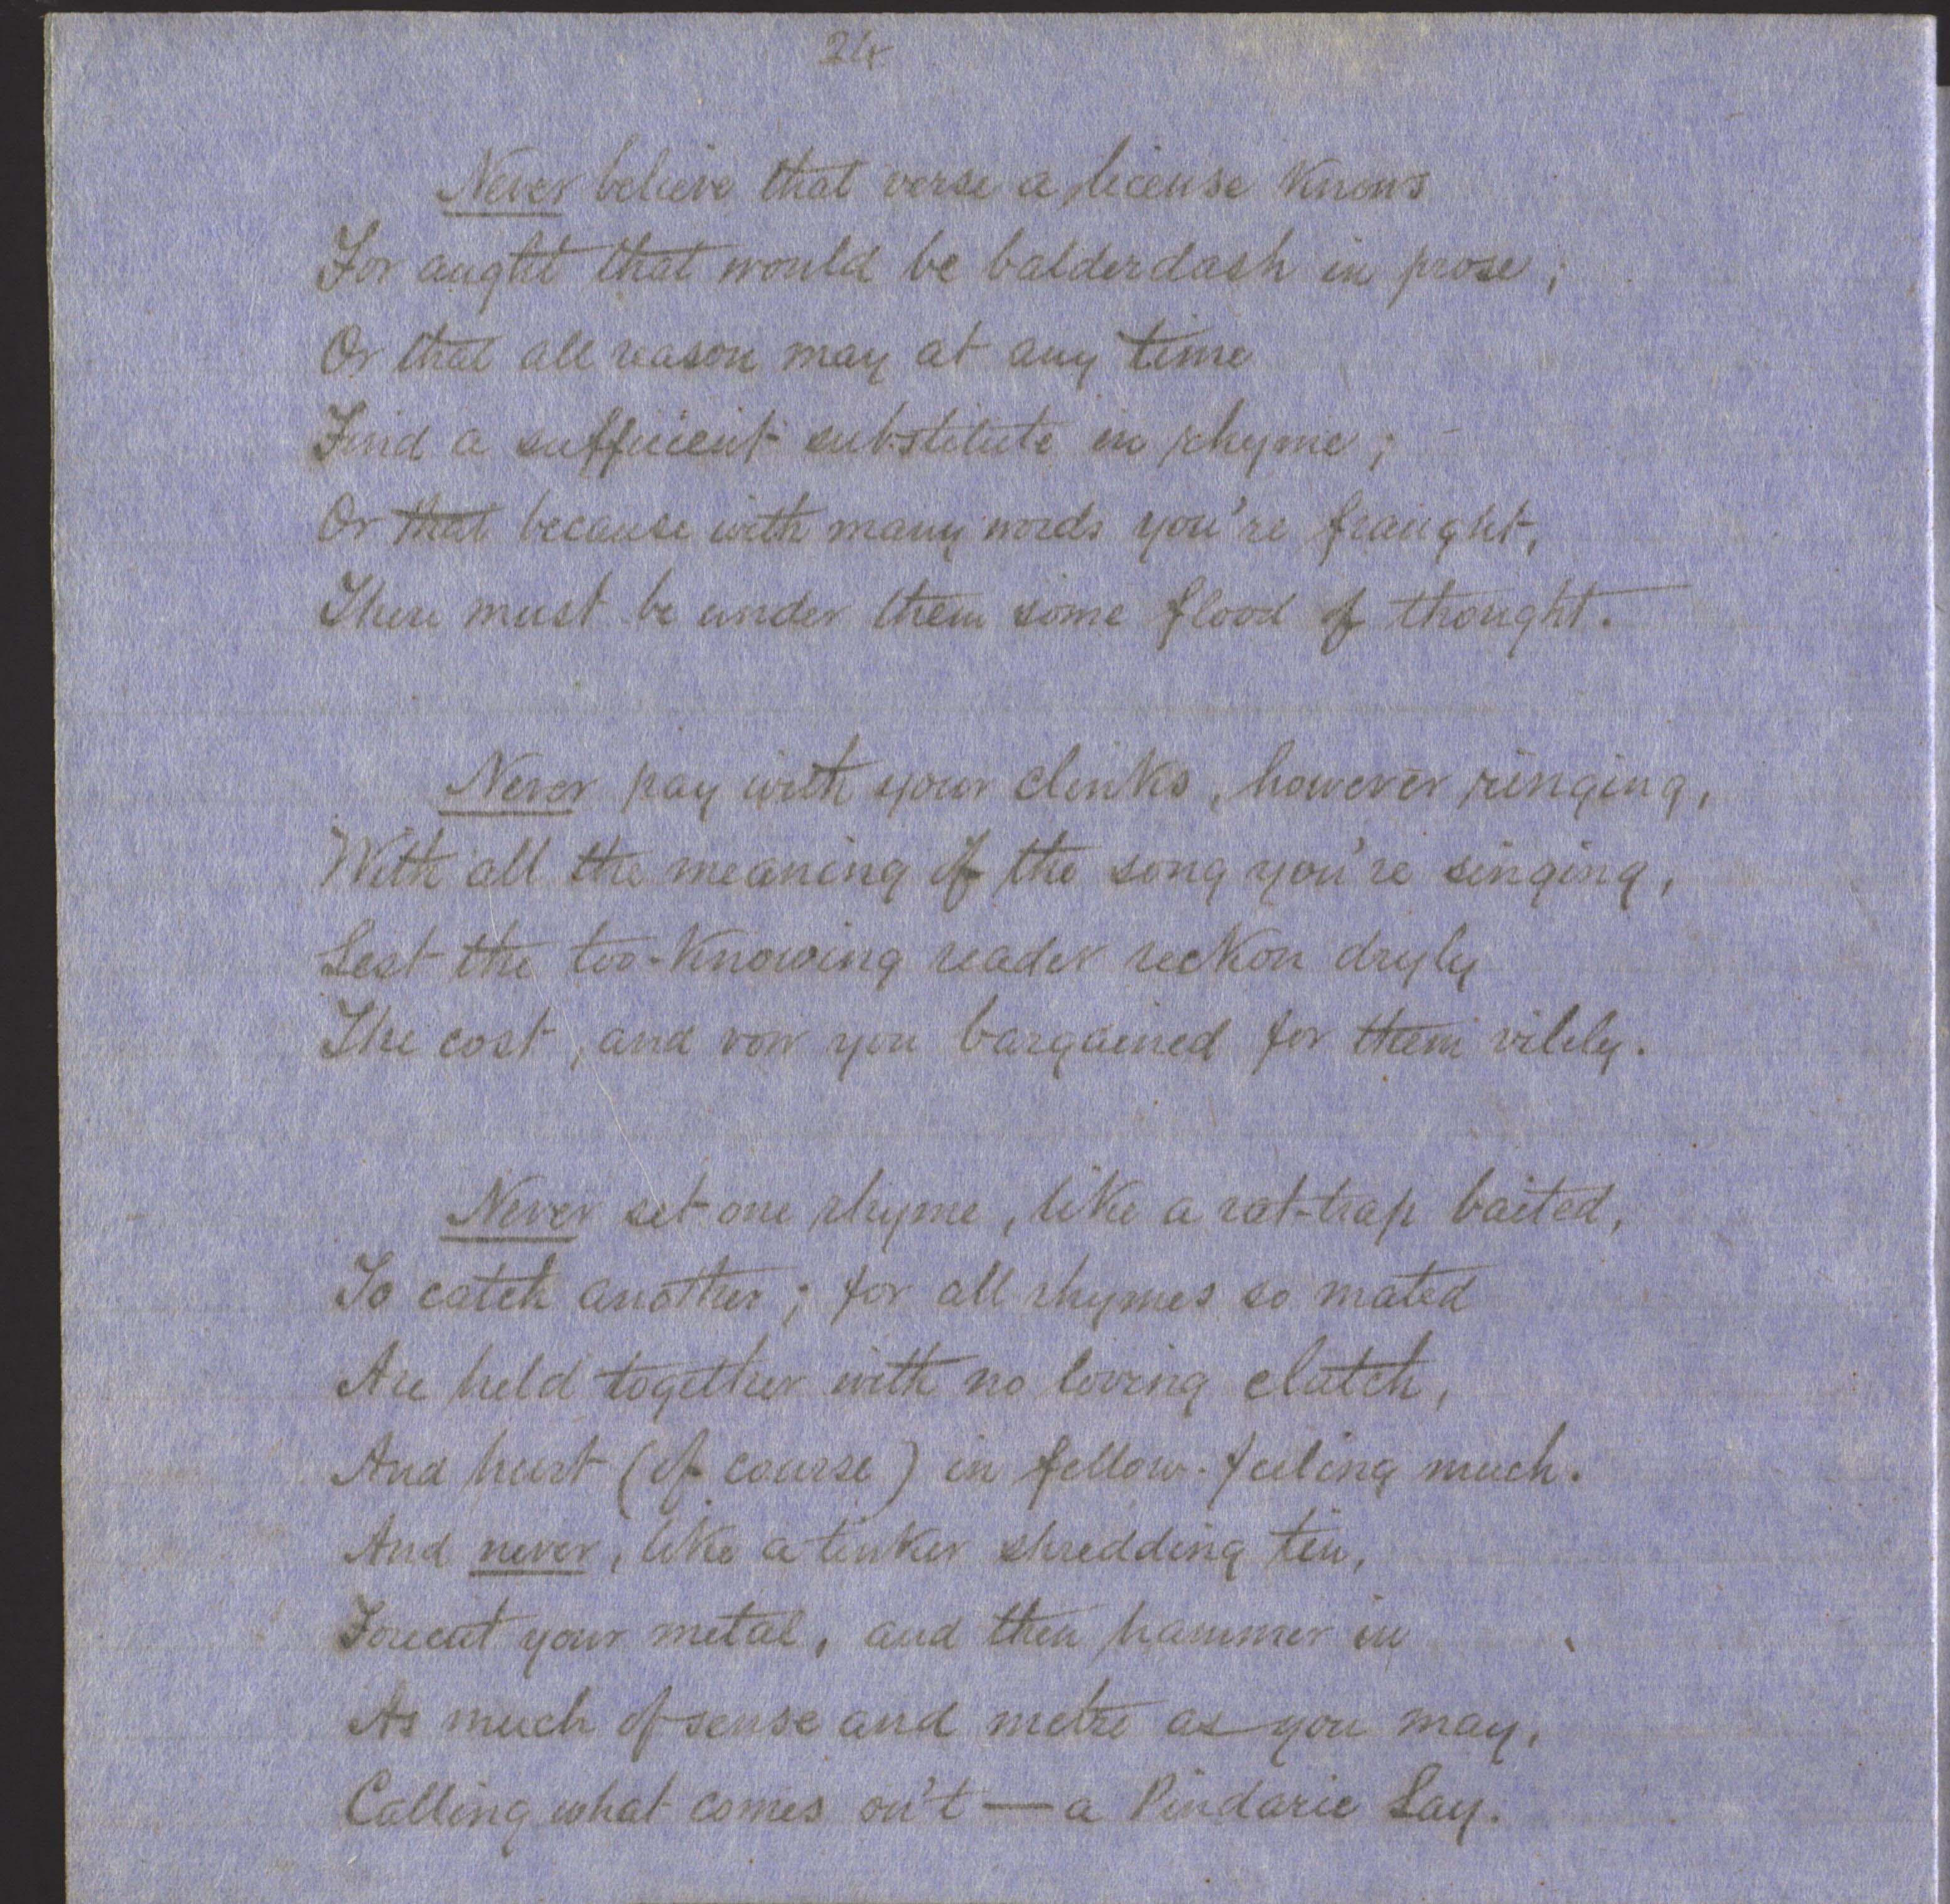 24
Never believe that verse a license knows
For aught that would be balderdash in prose;
Or that all reason may at any time
Find a sufficient substitute in rhyme;
Or that because with many words you're fraught,
There must be under them some flood of thought.
Never pay with your clinks, however ringing,
With all the meaning of the song you're singing,
Lest the too-knowing reader reckon dryly
The cost, and vow you bargained for them vilely.
Never set one rhyme, like a rat-trap baited,
To catch another; for all rhymes so mated
Are held together with no loving clutch,
And hurt (of course) in fellow-feeling much.
And never, like a tinker shredding tin,
Forecut your metal, and then hammer in
As much of sense and metre as you may,
Calling what comes on't — a Pindaric Lay.